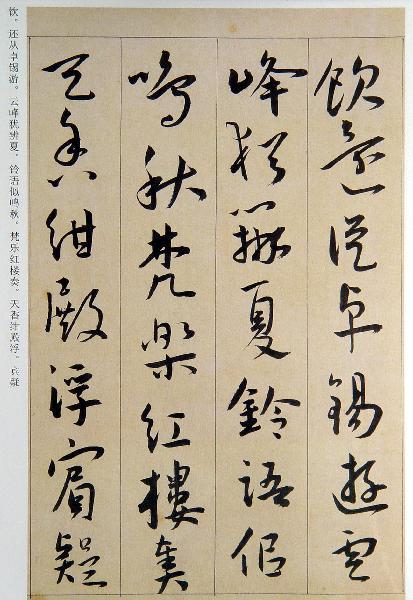 飲還從卓錫遊雲
峰猶辨夏鈴語佀
鳴秋梵樂紅樓奏
天香紺殿浮賓疑
饮。还从卓锡游。云峰犹辨夏，铃语似鸣秋。梵乐红楼奏，天香绀殿浮。宾疑